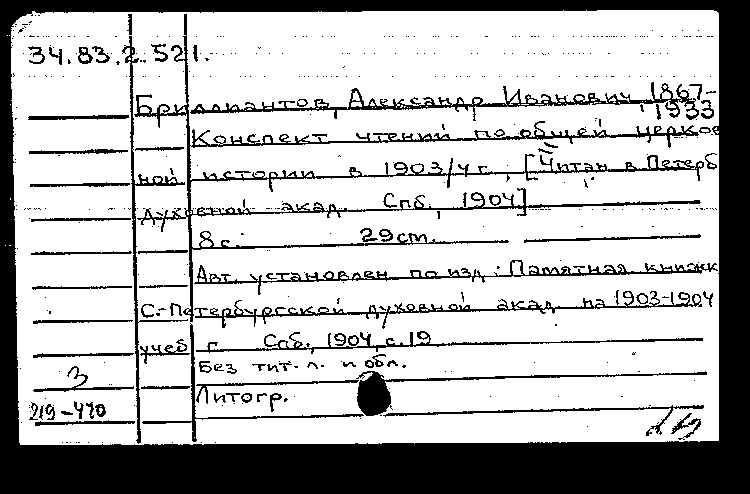 34.83.2.521.
Бриллиантов, Александр Иванович, 1867-
1933
Конспект чтений по общей церков
ной истории в 1903/4 г. [Читан в Петерб
духовной акад. Спб, 1904]
8 с. 29 cm.
Авт. установлен по изд.: Памятная книжк
С.-Петербургской духовной акад на 1903-1904
учеб г. Спб., 1904, с. 19
Без тит. л. и обл.
3
Литогр.
219-470